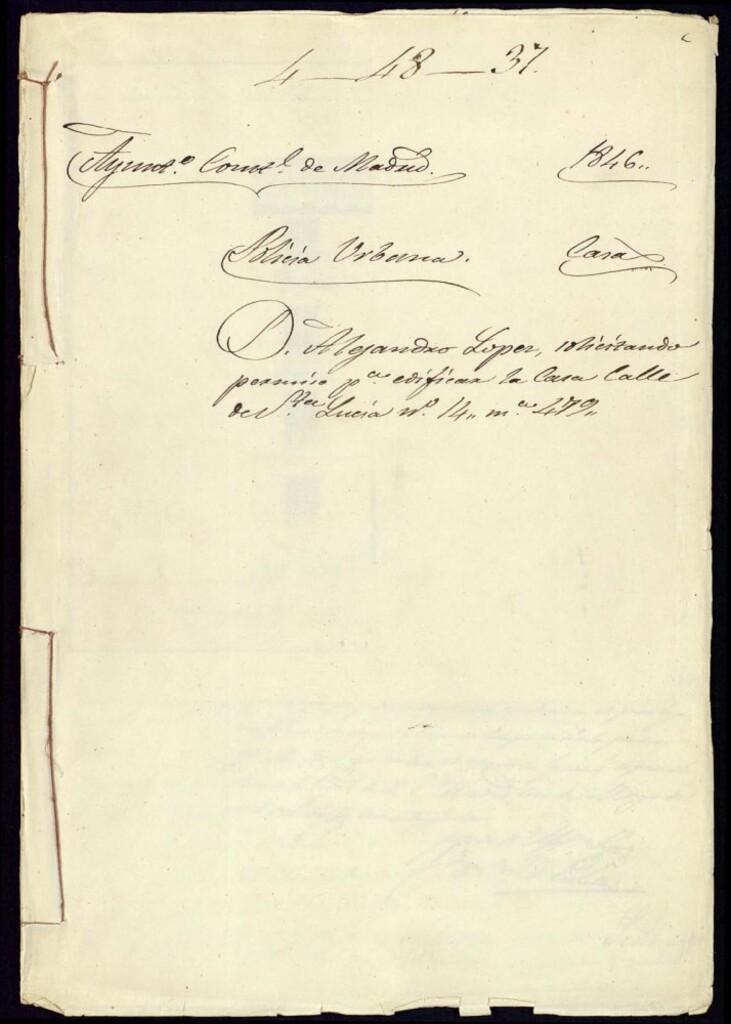 4 — 48 — 37.
Ayunt.º Const.l de Madrid. 1846..
Policia Urbana. Casa
D. Alejandro Lopez, solicitando
permiso p.ª edificar la Casa Calle
de S.ta Lucia n.º 14., m.ª 479..